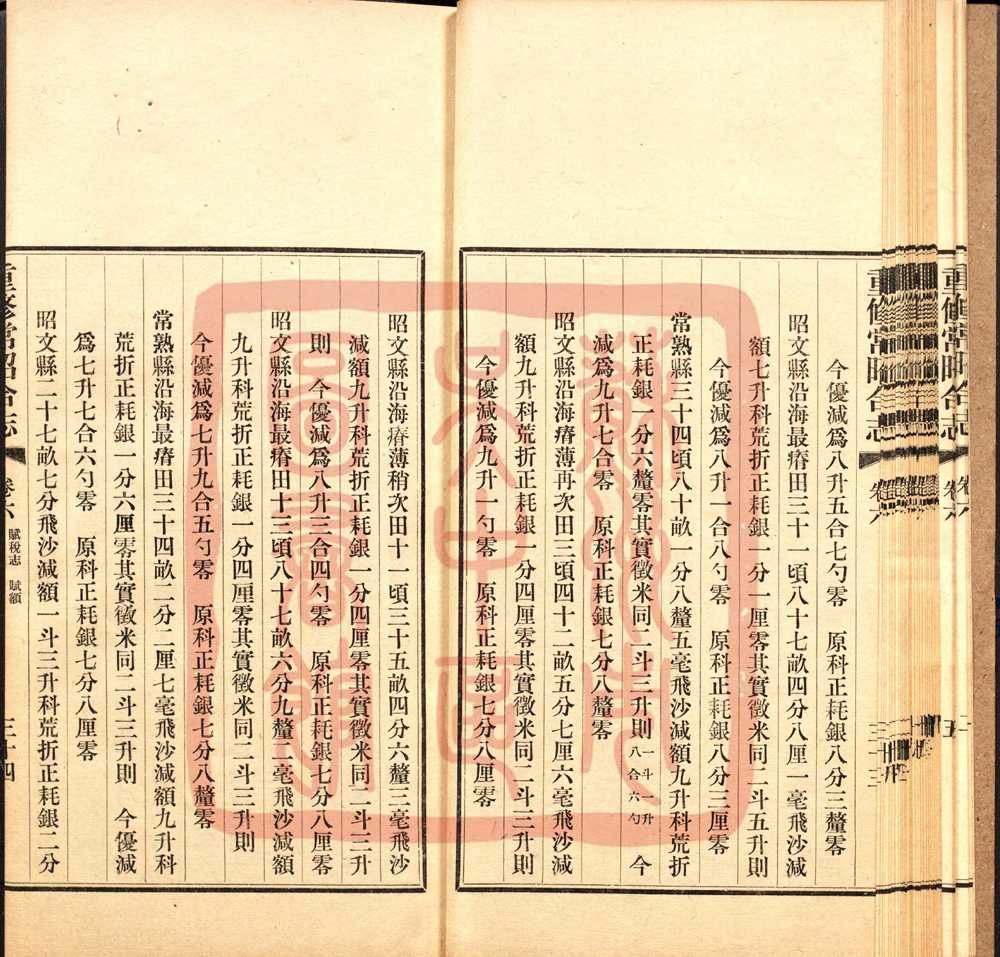 今優減爲八升五合七勺零　原科正耗銀八分三釐零
昭文縣沿海最瘠田三十一頃八十七畝四分八厘一毫飛沙減
額七升科荒折正耗銀一分一厘零其實徵米同二斗五升則
今優減爲八升一合八勺零　原科正耗銀八分三厘零
常熟縣三十四頃八十畝一分八釐五毫飛沙減額九升科荒折
正耗銀一分六釐零其實徵米同二斗三升則一斗一升八合六勺　今
減爲九升七合零　原科正耗銀七分八釐零
昭文縣沿海瘠薄再次田三頃四十二畝五分七厘六毫飛沙減
額九升科荒折正耗銀一分四厘零其實徵米同二斗三升則
今優減爲九升一勺零　原科正耗銀七分八厘零
昭文縣沿海瘠薄稍次田十一頃三十五畝四分六釐三毫飛沙
減額九升科荒折正耗銀一分四厘零其實徵米同二斗三升
則　今優減爲八升三合四勺零　原科正耗銀七分八厘零
昭文縣沿海最瘠田十三頃八十七畝六分九釐二毫飛沙減額
九升科荒折正耗銀一分四厘零其實徵米同二斗三升則
今優減爲七升九合五勺零　原科正耗銀七分八釐零
常熟縣沿海最瘠田三十四畝二分二厘七毫飛沙減額九升科
荒折正耗銀一分六厘零其實徵米同二斗三升則　今優減
爲七升七合六勺零　原科正耗銀七分八厘零
昭文縣二十七畝七分飛沙減額一斗三升科荒折正耗銀二分
重修常昭合志　卷六　賦稅志　賦額　三十四